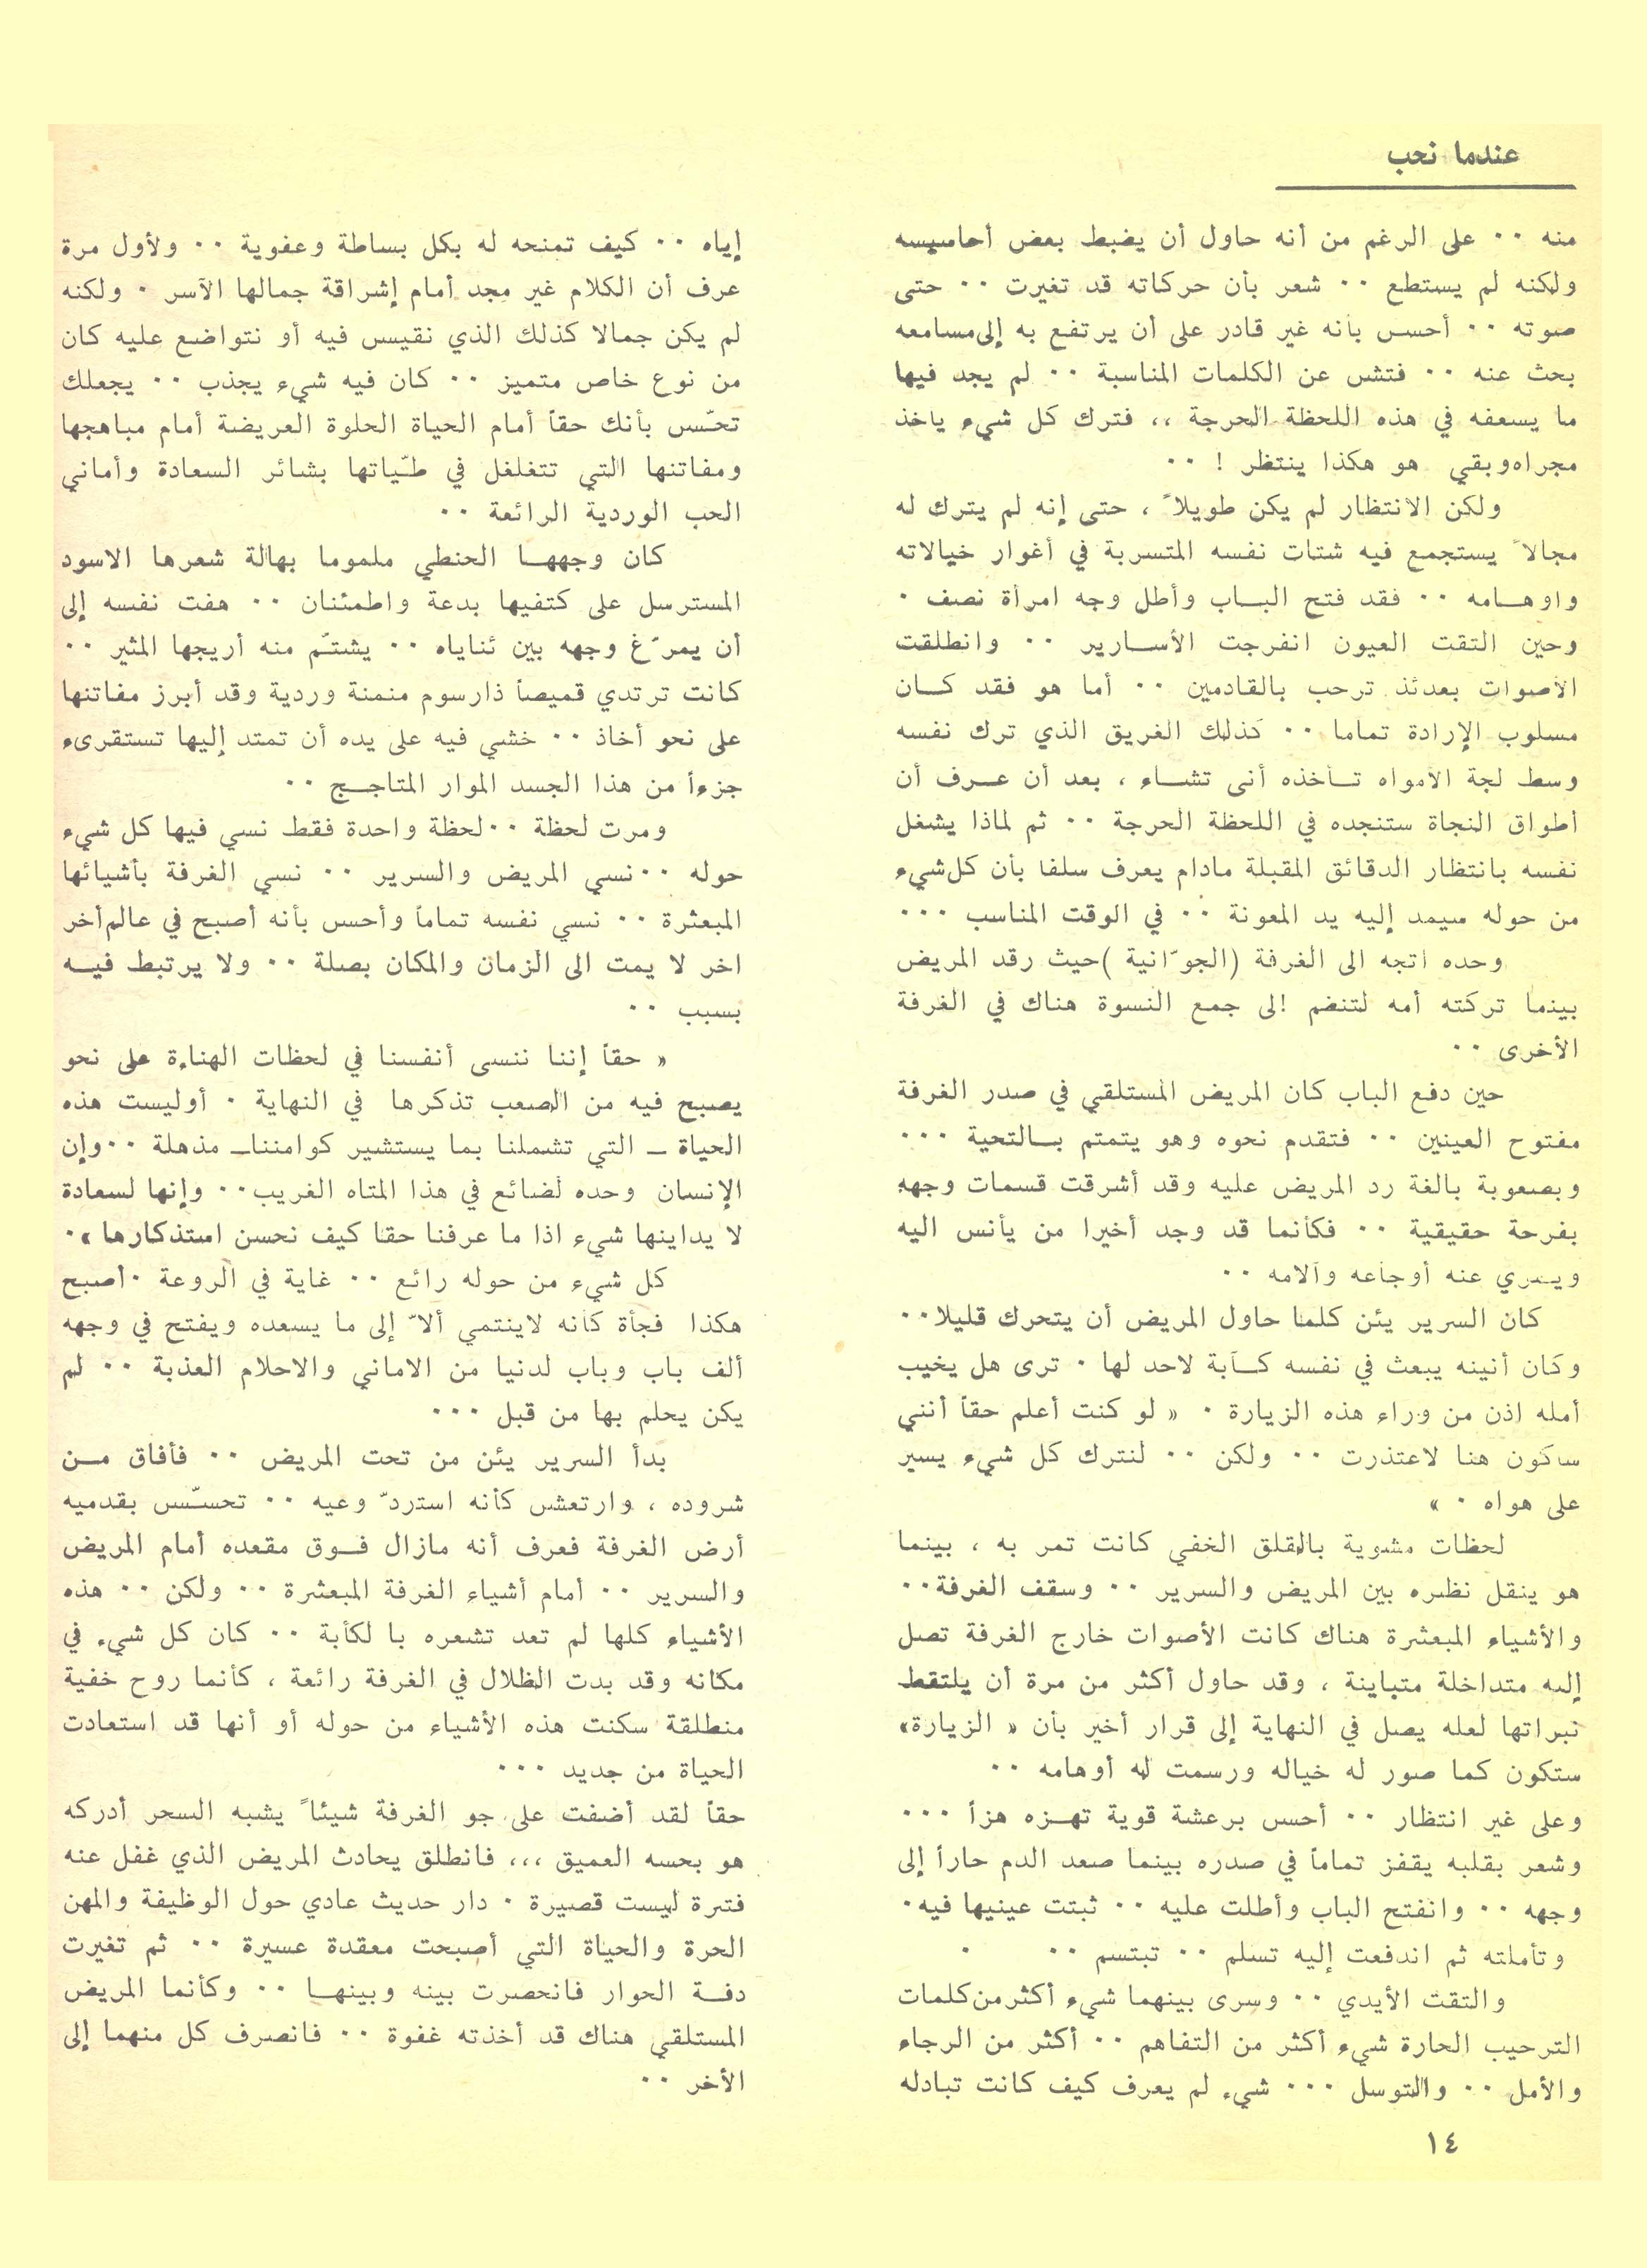 عندما نحب
منه ٠٠ على الرغم من أنه حاول أن يضبط بعض أحاسيسه
ولكنه لم يستطع ٠٠ شعر بأن حركاته قد تغيرت ٠٠ حتى
صوته ٠٠ أحس بأنه غير قادر على أن يرتفع به إلى مسامعه
بحث عنه ٠٠ فتش عن الكلمات المناسبة ٠٠ لم يجد فيها
ما يسعفه في هذه اللحظة الحرجة ،، فترك كل شيء ياخذ
مجراه وبقي هو هكذا ينتظر ! ٠٠
ولكن الانتظار لم يكن طويلاً ، حتى إنه لم يترك له
مجالاً يستجمع فيه شتات نفسه المتسربة في أغوار خيالاته
واوهـامه ٠٠ فقد فتح البـاب وأطل وجه امرأة نصف ٠
وحين التقت العيون انفرجت الأسـارير ٠٠ وانطلقت
الأصوات بعدئذ ترحب بالقادمين ٠٠ أما هو فقد كـان
مسلوب الإرادة تماما ٠٠ كذلك الغريق الذي ترك نفسه
وسط لجة الامواه تـأخذه أنى تشـاء ، بعد أن عـرف أن
أطواق النجاة ستنجده في اللحظة الحرجة ٠٠ ثم لماذا يشغل
نفسه بانتظار الدقائق المقبلة مادام يعرف سلفا بأن كل شيء
من حوله سيمد إليه يد المعونة ٠٠ في الوقت المناسب ٠٠٠
وحده اتجه الى الغرفة (الجوّانية )حيث رقد المريض
بينما تركته أمه لتنضم إلى جمع النسوة هناك في الغرفة
الأخرى ٠٠
حين دفع الباب كان المريض المستلقي في صدر الغرفة
مفتوح العينين ٠٠ فتقدم نحوه وهو يتمتم بـالتحية ٠٠٠
وبصعوبة بالغة رد المريض عليه وقد أشرقت قسمات وجهه
بفرحة حقيقية ٠٠ فكأنما قد وجد أخيرا من يأنس اليه
ويسري عنه أوجاعه وآلامه ٠٠
كان السرير يئن كلما حاول المريض أن يتحرك قليلا٠٠
وكان أنينه يبعث في نفسه كـآبة لاحد لها ٠ ترى هل يخيب
أمله اذن من وراء هذه الزيارة ٠ « لو كنت أعلم حقاً أنني
ساكون هنا لاعتذرت ٠٠ ولكن ٠٠ لنترك كل شيء يسير
على هواه ٠ »
لحظات مشوبة بالقلق الخفي كانت تمر به ، بينما
هو ينقل نظره بين المريض والسرير ٠٠ وسقف الغرفة٠٠
والأشياء المبعثرة هناك كانت الأصوات خارج الغرفة تصل
إليه متداخلة متباينة ، وقد حاول أكثر من مرة أن يلتقط
نبراتها لعله يصل في النهاية إلى قرار أخير بأن « الزيارة»
ستكون كما صور له خياله ورسمت له أوهامه ٠٠
وعلى غير انتظار ٠٠ أحس برعشة قوية تهـزه هزأ ٠٠٠
وشعر بقلبه يقفز تماماً في صدره بينما صعد الدم حاراً إلى
وجهه ٠٠ وانفتح الباب وأطلت عليه ٠٠ ثبتت عينيها فيه٠
وتأملته ثم اندفعت إليه تسلم ٠٠ تبتسم ٠٠ ٠
والتقت الأيدي ٠٠ وسرى بينهما شيء أكثر من كلمات
الترحيب الحارة شيء أكثر من التفاهم ٠٠ أكثر من الرجاء
والأمل ٠٠ والتوسل ٠٠٠ شيء لم يعرف كيف كانت تبادله
إياه ٠٠ كيف تمنحه له بكل بساطة وعفوية ٠٠ ولأول مرة
عرف أن الكلام غير مجد أمام إشراقة جمالها الآسر ٠ ولكنه
لم يكن جمالا كذلك الذي نقيس فيه أو نتواضع عليه كان
من نوع خاص متميز ٠٠ كان فيه شيء يجذب ٠٠ يجعلك
تحّس بأنك حقاً أمام الحياة الحلوة العريضة أمام مباهجها
ومفاتنها التي تتغلغل في طـّياتها بشائر السعادة وأماني
الحب الوردية الرائعة ٠٠
كان وجههـا الحنطي ملموما بهالة شعرها الاسود
المسترسل على كتفيها بدعة واطمئنان ٠٠ هفت نفسه إلى
أن يمرّغ وجهه بين ثناياه ٠٠ يشتـّم منه أريجها المثير ٠٠
كانت ترتدي قميصاً ذارسوم منمنة وردية وقد أبرز مفاتنها
على نحو أخاذ ٠٠ خشي فيه على يده أن تمتد إليها تستقرىء
جزءاً من هذا الجسد الموار المتاجـج ٠٠
ومرت لحظة ٠٠لحظة واحدة فقط نسي فيها كل شيء
حوله ٠٠نسي المريض والسرير ٠٠ نسي الغرفة بأشيائها
المبعثرة ٠٠ نسي نفسه تماماً وأحس بأنه أصبح في عالم أخر
اخر لا يمت الى الزمان والمكان بصلة ٠٠ ولا يرتبط فيـه
بسبب ٠٠
« حقاً إننا ننسى أنفسنا في لحظات الهناءة على نحو
يصبح فيه من الصعب تذكرها في النهاية ٠ أوليست هذه
الحياة ـ التي تشملنا بما يستشير كوامننا ـ مذهلة ٠٠وإن
الإنسان وحده لضائع في هذا المتاه الغريب٠٠ وإنها لسعادة
لا يداينها شيء اذا ما عرفنا حقا كيف نحسن استذكارها »٠
كل شيء من حوله رائع ٠٠ غاية في الروعة ٠أصبح
هكذا فجأة كأنه لاينتمي ألاّ إلى ما يسعده ويفتح في وجهه
ألف باب وباب لدنيا من الاماني والاحلام العذبة ٠٠ لم
يكن يحلم بها من قبل ٠٠٠
بدأ السرير يئن من تحت المريض ٠٠ فأفاق مـن
شروده ، وارتعش كأنه استردّ وعيه ٠٠ تحسـّس بقدميه
أرض الغرفة فعرف أنه مازال فـوق مقعده أمام المريض
والسرير ٠٠ أمام أشياء الغرفة المبعثرة ٠٠ ولكن ٠٠ هذه
الأشياء كلها لم تعد تشعره با لكأبة ٠٠ كان كل شيء في
مكانه وقد بدت الظلال في الغرفة رائعة ، كأنما روح خفية
منطلقة سكنت هذه الأشياء من حوله أو أنها قد استعادت
الحياة من جديد ٠٠٠
حقاً لقد أضفت على جو الغرفة شيئاً يشبه السحر أدركه
هو بحسه العميق ،،، فانطلق يحادث المريض الذي غفل عنه
فترة ليست قصيرة ٠ دار حديث عادي حول الوظيفة والمهن
الحرة والحياة التي أصبحت معقدة عسيرة ٠٠ ثم تغيرت
دفـة الحوار فانحصرت بينه وبينهـا ٠٠ وكأنما المريض
المستلقي هناك قد أخذته غفوة ٠٠ فانصرف كل منهما إلى
الأخر ٠٠
١٤